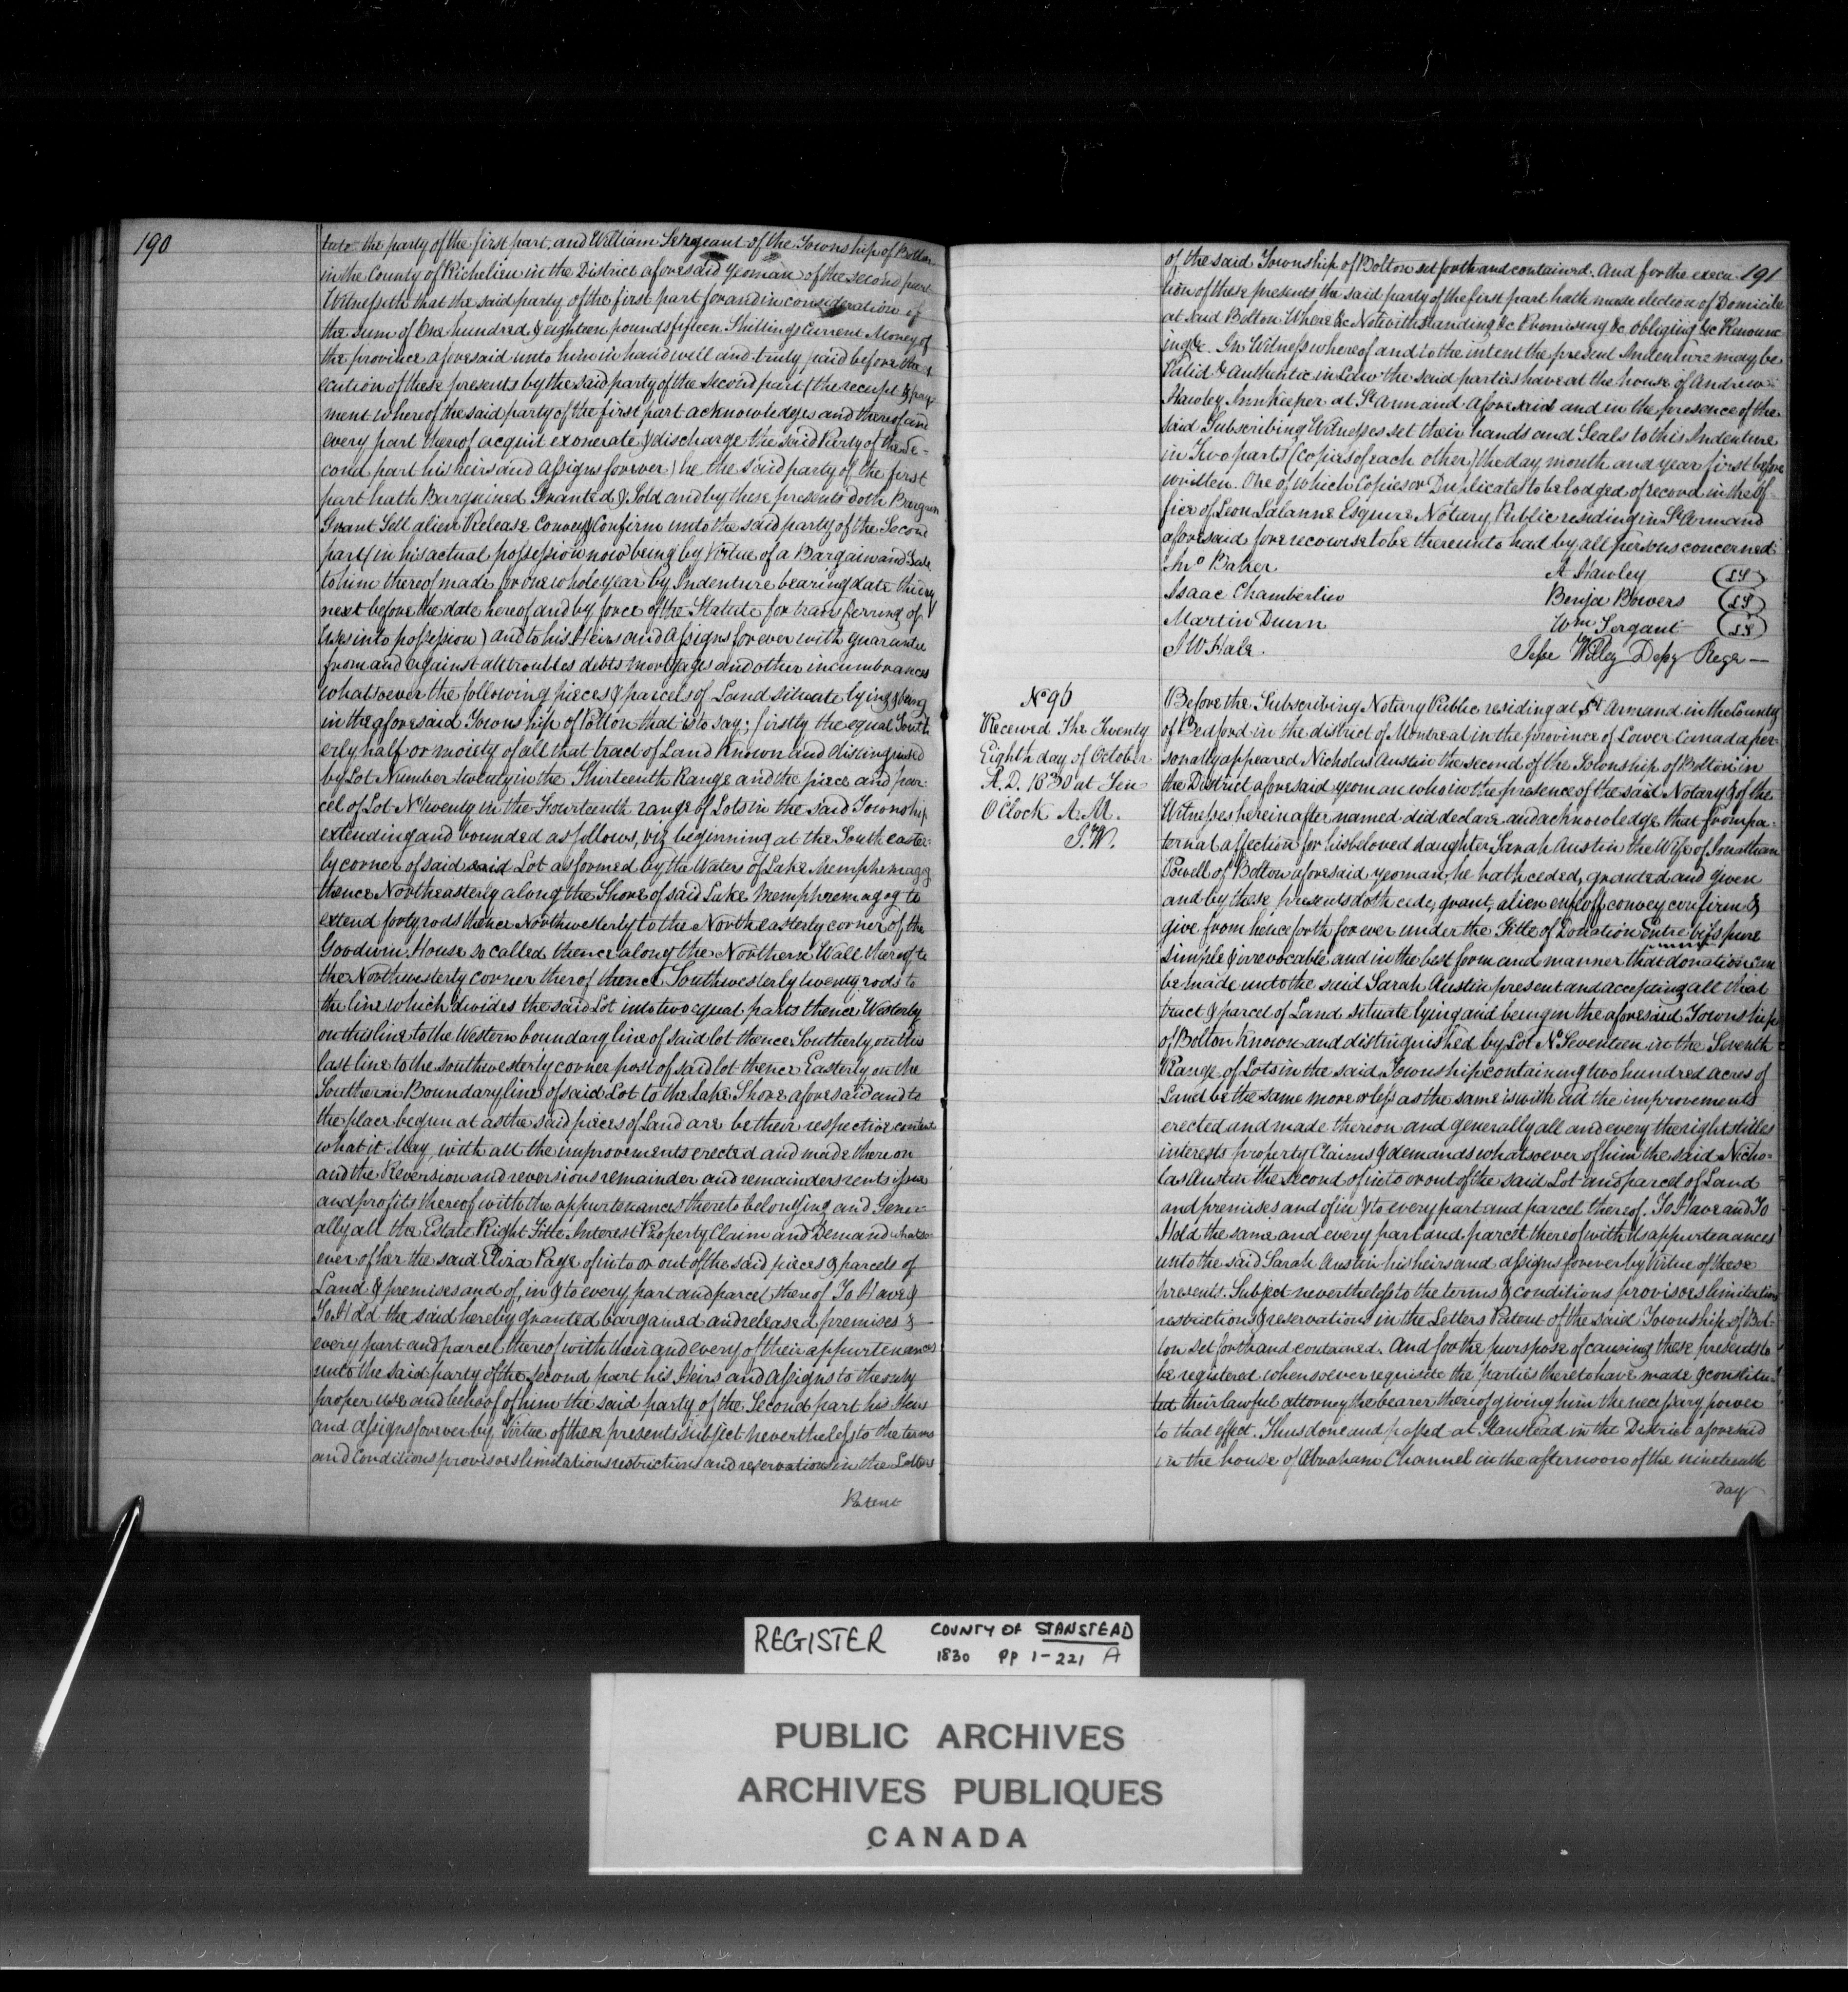 190
tute the party of the first part. and William Sergeant of the Township of Bolton
in the County of Richelieu in the District aforesaid yeoman of the second part
Witnesseth that the said party of the first part for and in consideration of
the sum of One hundred & eighteen pounds fifteen Shillings Current Money of
the province aforesaid unto him in hand well and truly paid before the
ecution of these presents by the said party of the Second part (the receipt & pay
ment whereof the said party of the first part acknowledges and thereof and
every part thereof acquit exonerate & discharge the said Party of the Se=
cond part his heirs and Assigns forever.) he the said party of the first
part hath Bargained Granted & Sold and by these presents doth Bargain
Grant Sell alien Release Convey & Confirm unto the said party of the Second
part (in his actual possession now being by Virtue of a Bargain and Sale
to him thereof made for one whole year by Indenture bearing date the day
next before the date hereof and by force of the Statute for transferring of
Uses into possession) and to his Heirs and Assigns forever with guarantee
from and against all troubles debts mortgages and other incumbrances
whatsoever the following pieces & parcels of Land situate lying & being
in the aforesaid Township of Potton that is to say; firstly the equal South
erly half or moiety of all that tract of Land Known and distinguished
by Lot Number twenty in the Thirteenth Range and the piece and par=
cel of Lot No twenty in the Fourteenth range of Lots in the said Township
extending and bounded as follows, viz beginning at the South easter=
ly corner of said said Lot as formed by the Waters of Lake Memphremagog
thence Northeasterly along the Shore of said Lake Memphremagog to
extend forty rods thence Northwesterly to the North easterly corner of the
Goodwin House so called thence along the Northern Wall thereof to
the Northwesterly corner thereof thence Southwesterly twenty rods to
the line which divides the said Lot into two equal parts thence Westerly
on this line to the Western boundary line of said lot thence Southerly on this
last line to the southwesterly corner post of said lot thence Easterly on the
Southern Boundary line of said Lot to the Lake Shore aforesaid and to
the place begun at as the said pieces of Land are be their respective content
what it May, with all the improvements erected and made thereon
and the Reversion and reversions remainder and remainders rents issues
and profits thereof with the appurtenances thereto belonging and Gener
ally all the Estate Right Title Interest Property Claim and Demand whatso
ever of her the said Eliza Page of in to or out of the said pieces & parcels of
Land & premises and of, in & to every part and parcel thereof To Have &
To Hold the said hereby granted bargained and released premises &
every part and parcel thereof with their and every of their appurtenances
unto the said party of the second part his Heirs and Assigns to the only
proper use and behoof of him the said party of the Second part his Heirs
and Assigns forever by Virtue of these presents subject nevertheless to the terms
and Conditions provisoes limitations restrictions and reservations in the Letters
Patent
191
of the said Township of Bolton set forth and contained. And for the execu
tion of these presents the said party of the first part hath made election of Domicile
at said Bolton Where &c Notwithstanding &c Promising &c Obliging &c Renounc
ing &c. In Witness whereof and to the intent the present Indenture may be
Valid & Authentic in Law the said parties have at the house of Andrew
Hawley Innkeeper at St Armand aforesaid and in the presence of the
said Subscribing Witnesses set their hands and Seals to this Indenture
in Two parts (copies of each other) the day, month and year first before
written. One of which Copies or Duplicates to be lodged of record in the Of
fice of Leon Lalanne Esquire Notary Public residing in St Armand
aforesaid for recourse to be thereunto had by all persons concerned.
Jno Baker A Hawley (LS)
Isaac Chamberlin Benja Bowers (LS)
Martin Duurn Wm Sergant (LS)
S W Hale. Jesse Willey Depy Regr
No 96
Received The Twenty
Eighth day of October
A. D. 1830 at Ten
O Clock A. M.
J. W.
Before the Subscribing Notary Public residing at St Armand in the County
of Bedford in the district of Montreal in the province of Lower Canada per
sonally appeared Nicholas Austin the second of the Township of Bolton in
the District aforesaid yeoman who in the presence of the said Notary & of the
Witnesses hereinafter named did declare and acknowledge that from pa=
ternal affection for his beloved daughter Sarah Austin the Wife of Jonathan
Powell of Bolton aforesaid yeoman, he hath ceded, granted and given
and by these presents doth cede, grant, alien enfeoff convey confirm &
give from henceforth for ever under the Title of Donation entre vifs pure
simple & irrevocable and in the best form and manner that donation can
be made unto the said Sarah Austin present and accepting all that
tract & parcel of Land situate lying and being in the aforesaid Township
of Bolton Known and distinguished by Lot No Seventeen in the Seventh
Range of Lots in the said Township containing two hundred acres of
Land be the same more or less as the same is with all the improvements
erected and made thereon and generally all and every the rights titles
interests property Claims & demands whatsoever of him the said Nicho=
las Austin the second of in to or out of the said Lot and parcel of Land
and premises and of in & to every part and parcel thereof. To Have and To
Hold the same and every part and parcel thereof with its appurtenances
unto the said Sarah Austin his heirs and assigns forever by Virtue of these
presents. Subject nevertheless to the terms & conditions provisoes limitations
restrictions & reservations in the Letters Patent of the said Township of Bol=
ton set forth and contained. And for the purspose of causing these presents to
be registered whensoever requisite the parties thereto have made & constitu=
ted their lawful attorney the bearer thereof giving him the necessary power
to that effect. Thus done and passed at Stanstead in the District aforesaid
in the house of Abraham Channel in the afternoon of the nineteenth
day
REGISTER COUNTY OF STANSTEAD
1830 PP 1-221 A
PUBLIC ARCHIVES
ARCHIVES PUBLIQUES
CANADA